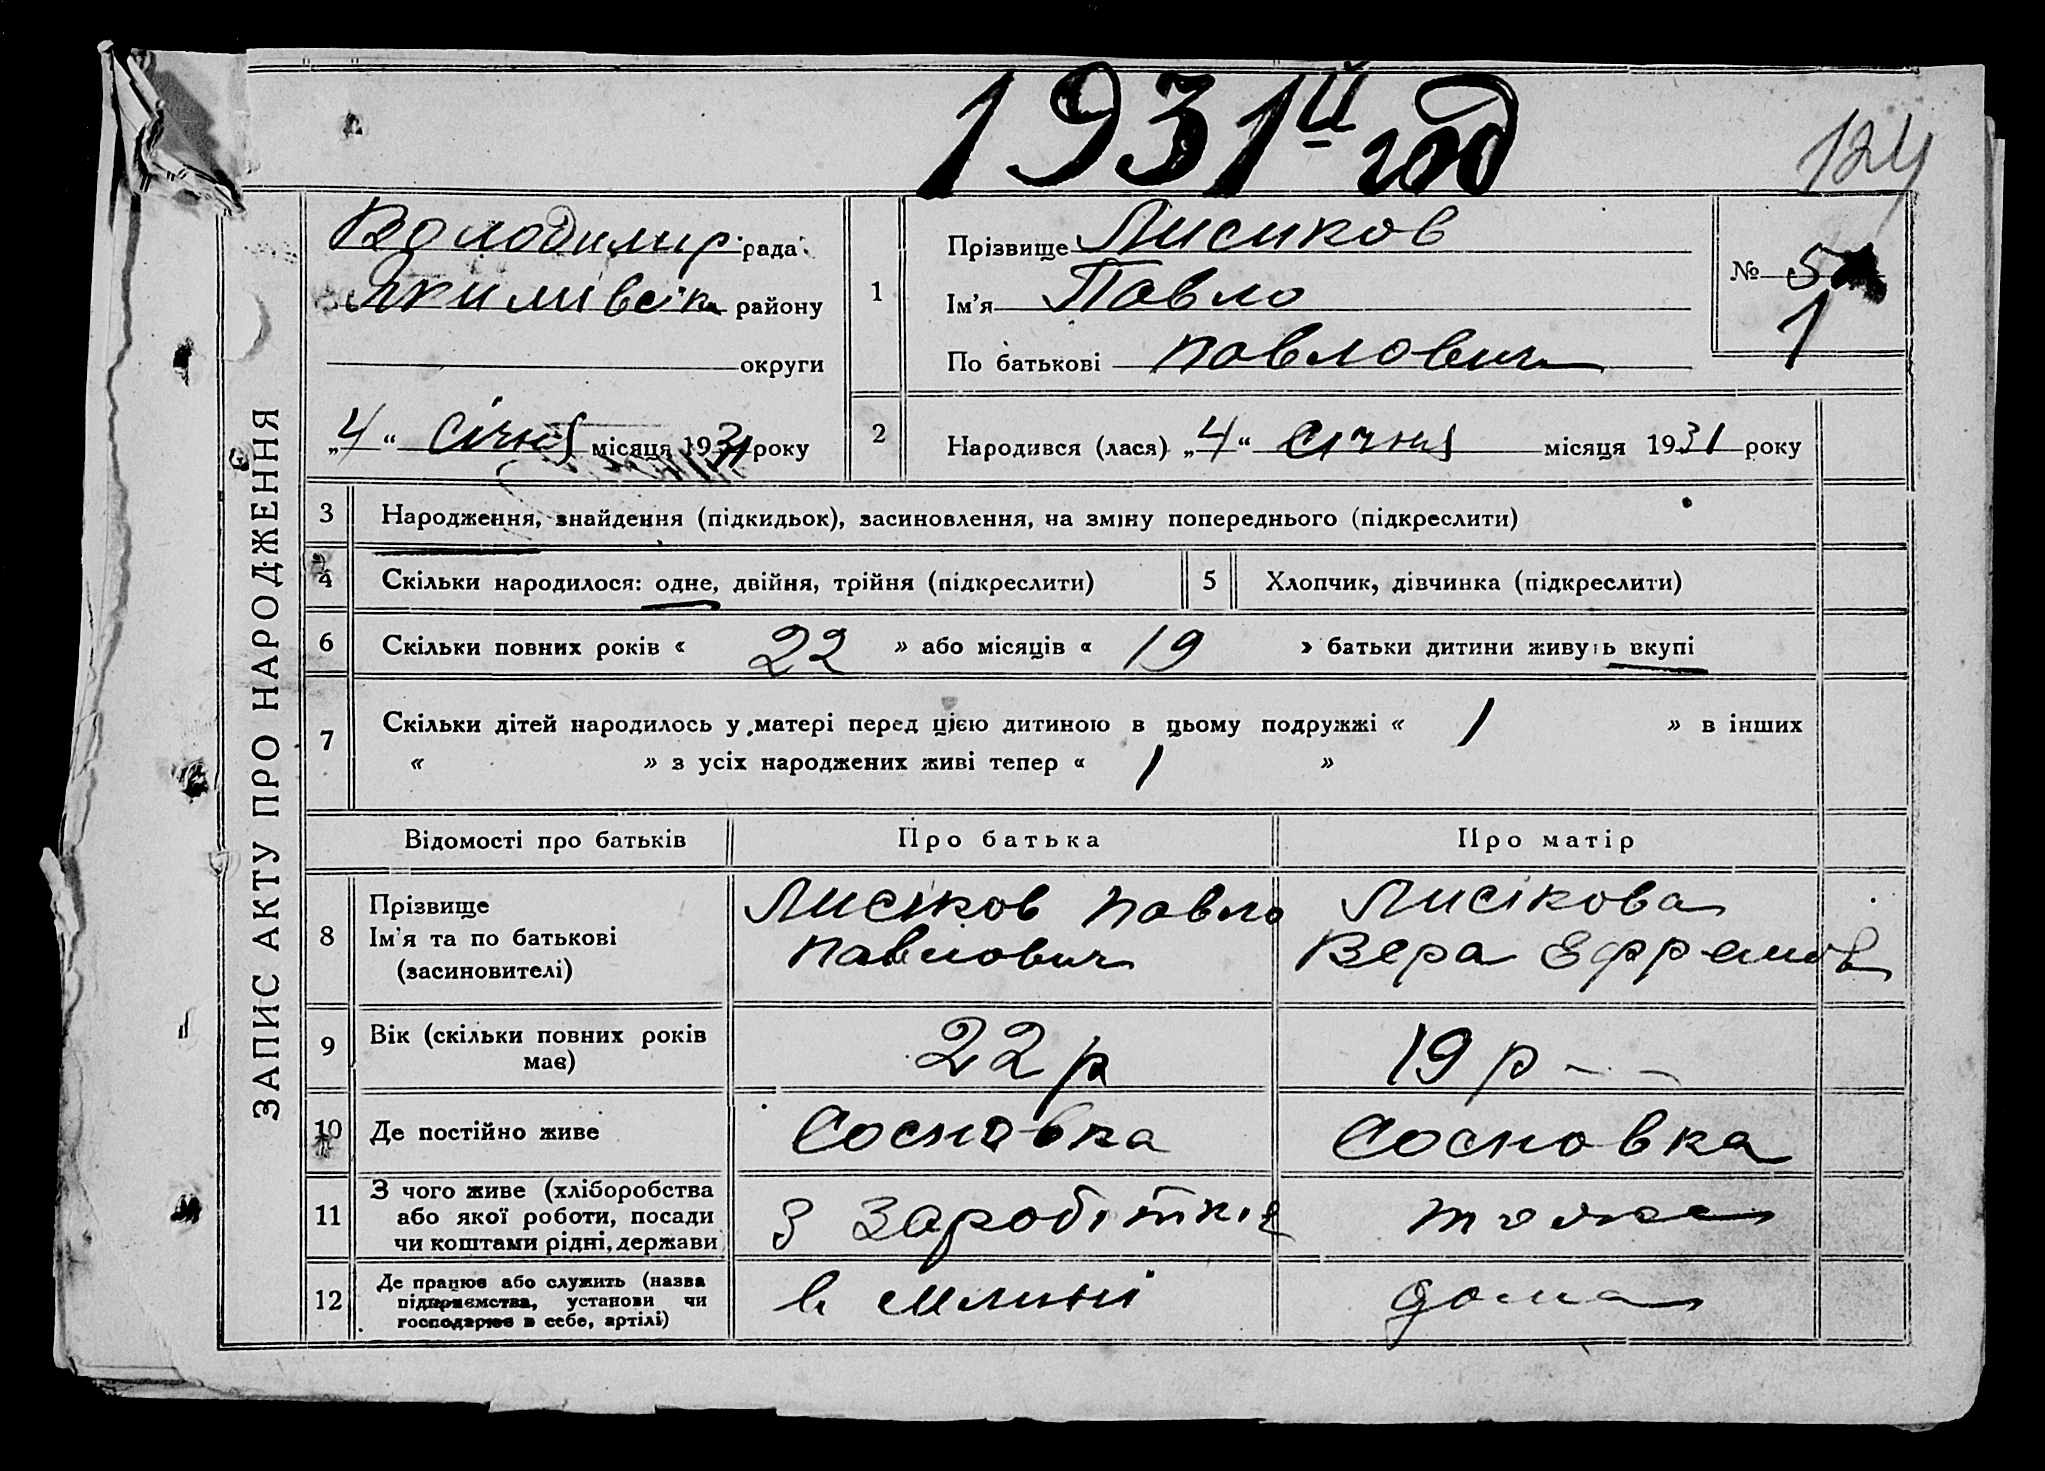 1931й год
124
Володимир рада
Якимивськ району
округи
„4“ січня місяця 1931 року
1
Прізвище Лисиков
Ім’я Павло
По батькові Павлович
№ 5
1
2
Народився (лася) „4“ січня місяця 1931 року
ЗАПИС АКТУ ПРО НАРОДЖЕННЯ
3 Народження, знайдення (підкидьок), засиновлення, на зміну попереднього (підкреслити)
4 Скільки народилося: одне, двійня, трійня (підкреслити) 5 Хлопчик, дівчинка (підкреслити)
6 Скільки повних років « 22 » або місяців « 19 » батьки дитини живуть вкупі
7 Скільки дітей народилось у матері перед цією дитиною в цьому подружжі « 1 » в інших
« » з усіх народжених живі тепер « 1 »
Відомості про батьків Про батька Про матір
8 Прізвище
Ім’я та по батькові
(засиновителі)
Лисіков Павло
Павлович
Лисікова
Вера Ефремов
9 Вік (скільки повних років
має)
22 р
19 р - -
10 Де постійно живе Сосновка Сосновка
11 З чого живе (хліборобства
або якої роботи, посади
чи коштами рідні, держави
З заробітків
тоже
12 Де працює або служить (назва
підприємства, установи чи
господарює в себе, артілі)
в млині
дома